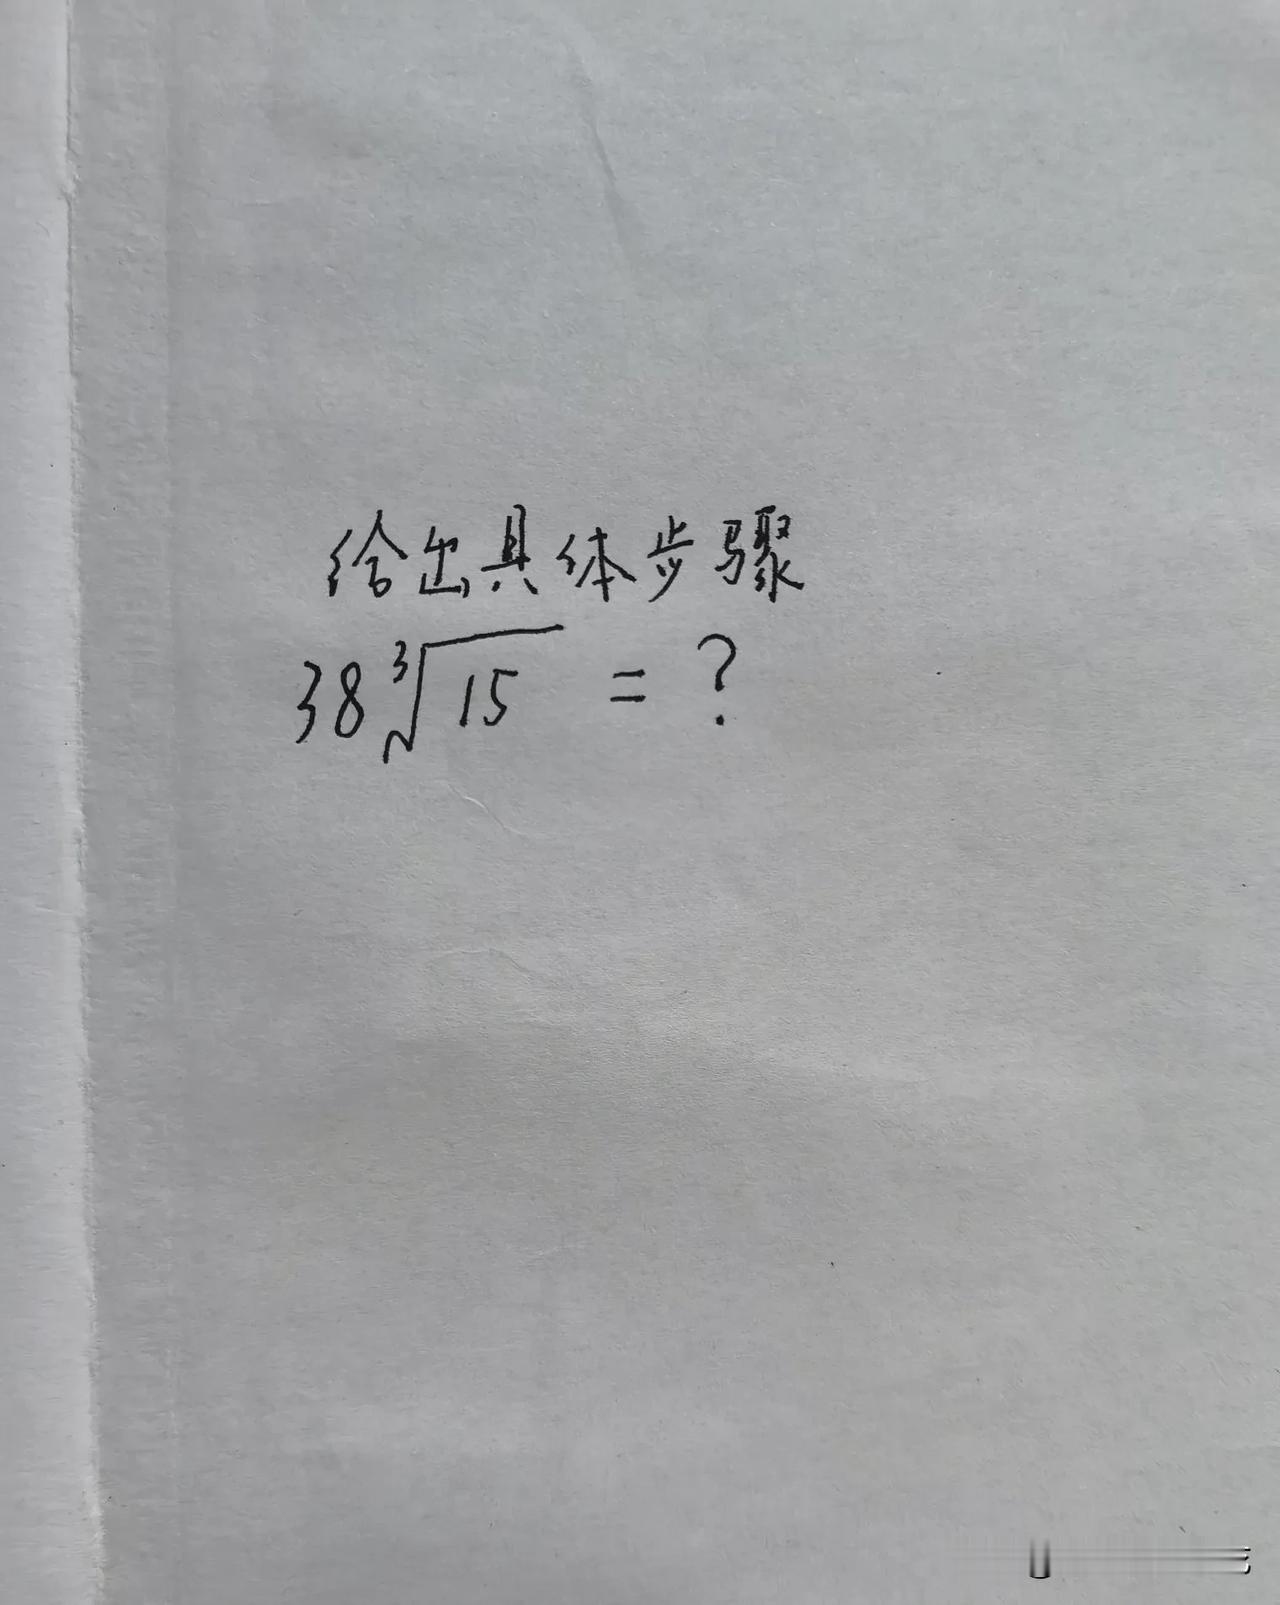 给出具体步骤
38∛15 = ?